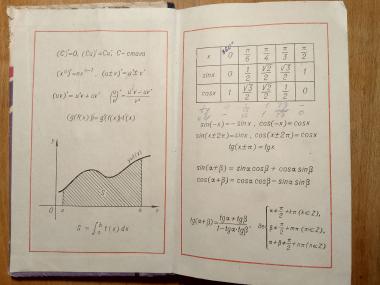 (C)'=0, (Cu)'=Cu', C-стала
(xⁿ)'=nxⁿ⁻¹, (u±v)'=u'±v'
(uv)'=u'v+uv' (u/v)'=(u'v-uv')/v²
y=f(x)
y
0 a b x
S=∫ₐᵇ f(x)dx
x 0 π/6 π/4 π/3 π/2
sinx 0 1/2 √2/2 √3/2 1
cosx 1 √3/2 √2/2 1/2 0
sin(-x)=-sinx, cos(-x)=cosx
sin(x±2π)=sinx, cos(x±2π)=cosx
tg(x±π)=tgx
sin(α+β)=sinα cosβ + cosα sinβ
cos(α+β)=cosα cosβ-sinα sinβ
tg(α+β)=(tgα+tgβ)/(1-tgα·tgβ),
α≠π/2+kπ (k∈Z),
β≠π/2+mπ (m∈Z),
α+β≠π/2+nπ (n∈Z)